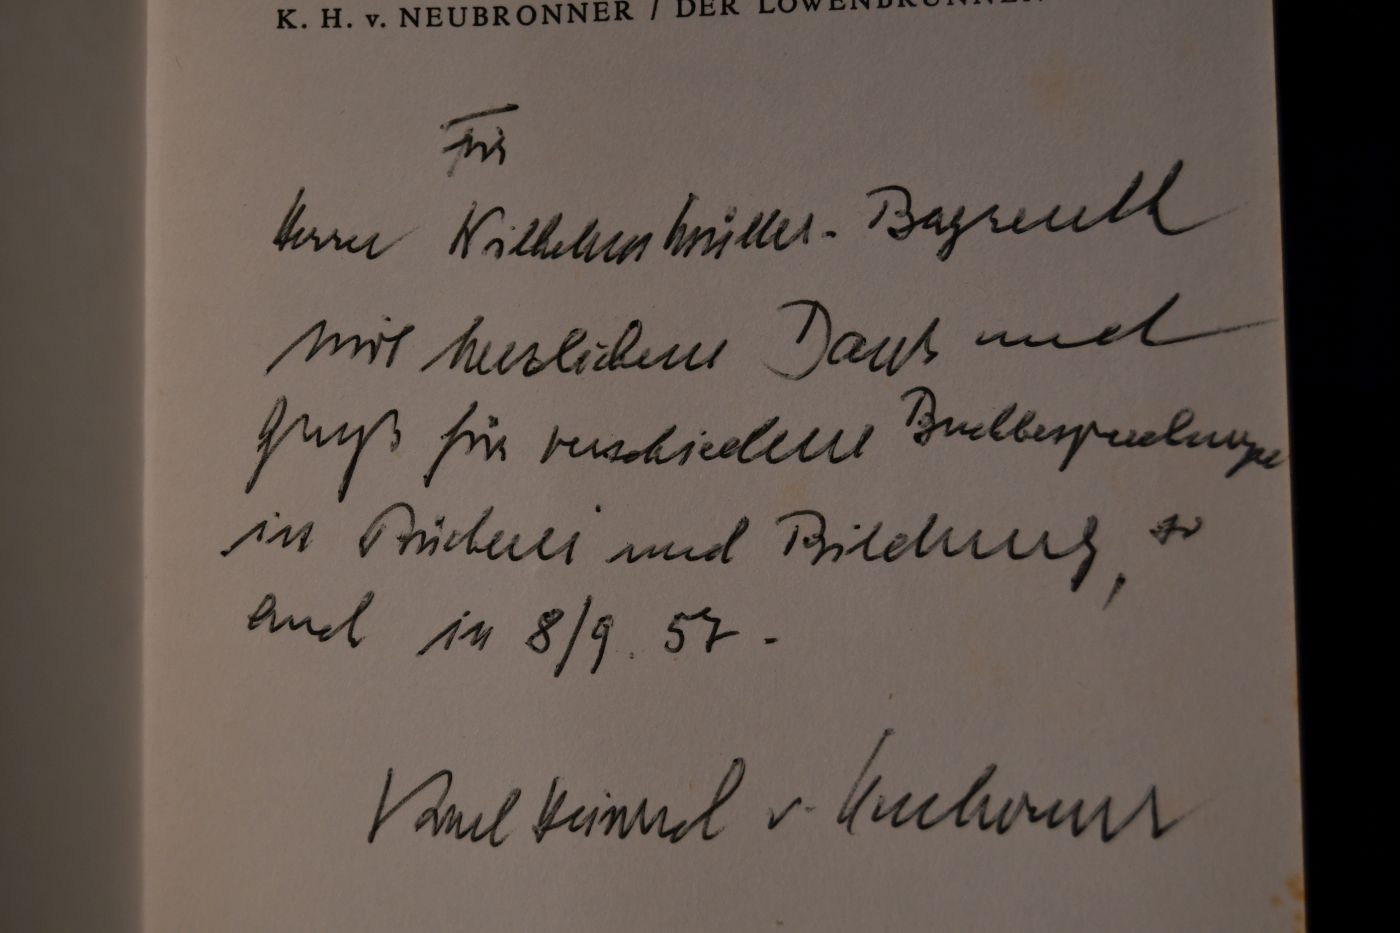 K. H. v. NEUBRONNER / DER LÖWENBRUNNEN
Für
Herrn Wilhelm Müller - Bayreuth
mit herzlichem Dank und
Gruß für verschiedene Buchbesprechungen
in Bücherei und Bildung, so
auch in 8/9. 57 -
Karl Heinrich v. Neubronner